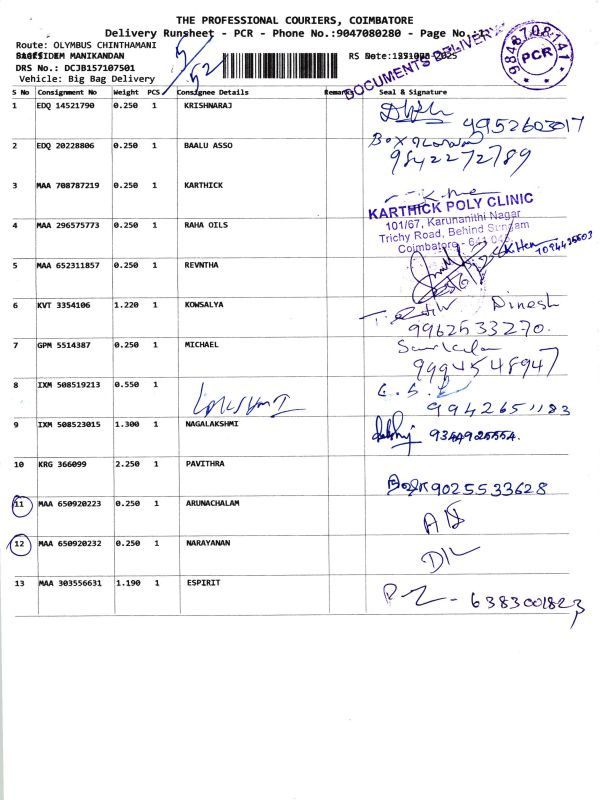 THE PROFESSIONAL COURIERS, COIMBATORE
Delivery Runsheet - PCR - Phone No.:9047080280 - Page No.:1
Route: OLYMBUS CHINTHAMANI
MANIKANDAN
DRS No.: DCJB157107501
Vehicle: Big Bag Delivery
5/52
DOCUMENTS DELIVERY
9848708141
PCR
S No Consignment No Weight PCS Consignee Details Remarks Seal & Signature
1 EDQ 14521790 0.250 1 KRISHNARAJ
9952603017
2 EDQ 20228806 0.250 1 BAALU ASSO
9842272789
3 MAA 708787219 0.250 1 KARTHICK
KARTHICK POLY CLINIC
101/67, Karunanithi Nagar
Trichy Road, Behind Sungam
Coimbatore - 641 045
4 MAA 296575773 0.250 1 RAHA OILS
5 MAA 652311857 0.250 1 REVNTHA
6 KVT 3354106 1.220 1 KOWSALYA
Dinesh
9962533270.
7 GPM 5514387 0.250 1 MICHAEL
9994548947
8 IXM 508519213 0.550 1
9942651183
9 IXM 508523015 1.300 1 NAGALAKSHMI
10 KRG 366099 2.250 1 PAVITHRA
9025533628
11 MAA 650920223 0.250 1 ARUNACHALAM
12 MAA 650920232 0.250 1 NARAYANAN
13 MAA 303556631 1.190 1 ESPIRIT
6383001823